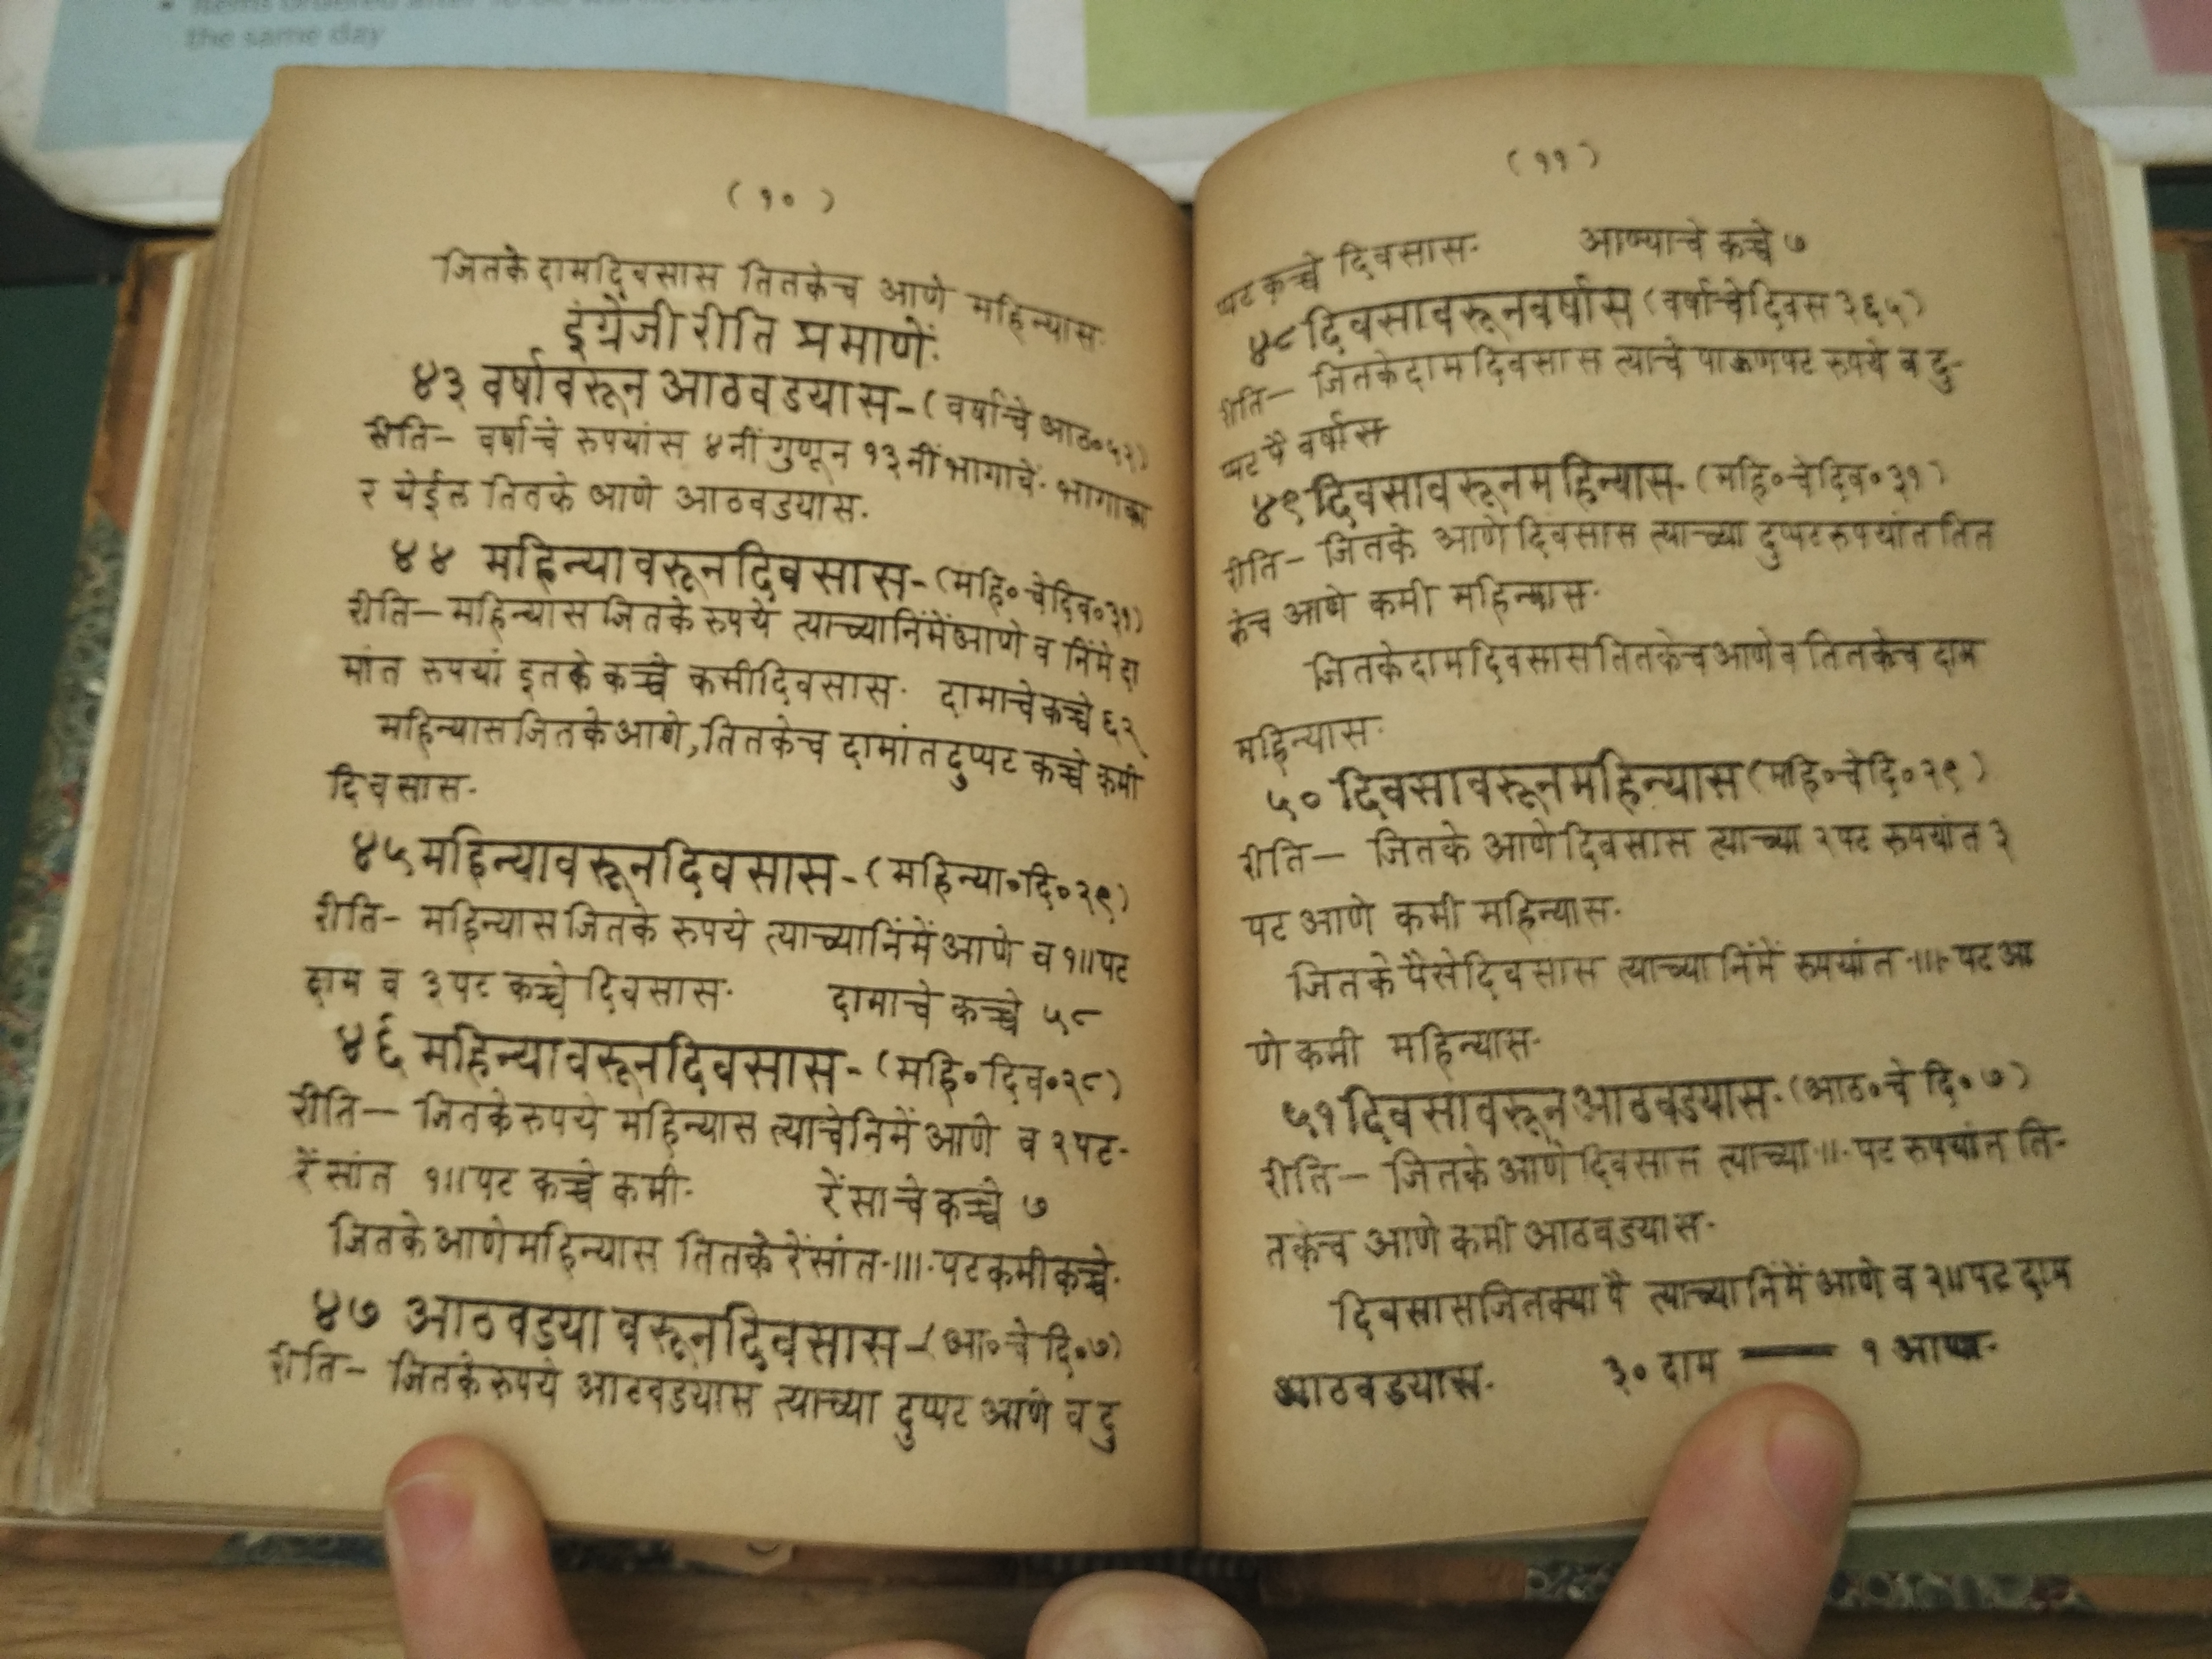 the same day
( १० )
जितके दाम दिवसास तितकेच आणे महिन्यास.
इंग्रेजी रीति प्रमाणें.
४३ वर्षावरून आठवडयास-( वर्षाचे आठ॰५२)
रीति- वर्षाचे रुपयांस ४नीं गुणून १३नीं भागावें. भागाका
र येईल तितके आणे आठवडयास.
४४ महिन्यावरून दिवसास-(महि॰चेदिव॰३१)
रीति— महिन्यास जितके रुपये त्याच्यानिंमें आणे व निंमे दा
मांत रुपयां इतके कच्चे कमी दिवसास. दामाचे कच्चे ६२
महिन्यास जितके आणे, तितकेच दामांत दुप्पट कच्चे कमी
दिवसास.
४५ महिन्यावरून दिवसास-(महिन्या॰दि॰२९)
रीति- महिन्यास जितके रुपये त्याच्यानिंमें आणे व १॥पट
दाम व ३पट कच्चे दिवसास. दामाचे कच्चे ५८
४६ महिन्यावरून दिवसास-(महि॰दिव॰२८)
रीति— जितके रुपये महिन्यास त्याचेनिमें आणे व २पट-
रेंसांत १॥पट कच्चे कमी. रेंसाचे कच्चे ७
जितके आणे महिन्यास तितके रेंसांत.॥।.पट कमी कच्चे.
४७ आठवडया वरून दिवसास-(आ॰चे दि॰७)
रीति- जितके रुपये आठवडयास त्याच्या दुप्पट आणे व दु
( ११ )
प्पट कच्चे दिवसास. आण्याचे कच्चे ७
४८ दिवसावरून वर्षास (वर्षाचे दिवस ३६५)
रीति— जितके दाम दिवसास त्याचे पाऊणपट रुपये व दु-
प्पट पै वर्षास
४९ दिवसावरून महिन्यास-(महि॰चेदिव॰३१)
रीति— जितके आणे दिवसास त्याच्या दुप्पट रुपयांत तित
केच आणे कमी महिन्यास.
जितके दाम दिवसास तितकेच आणे व तितकेच दाम
महिन्यास.
५० दिवसावरून महिन्यास (महि॰चेदि॰२९)
रीति— जितके आणे दिवसास त्याच्या २पट रुपयांत ३
पट आणे कमी महिन्यास.
जितके पैसे दिवसास त्याच्यानिंमें रुपयांत.॥।.पट आ
णे कमी महिन्यास.
५१ दिवसावरून आठवडयास-(आठ॰चे दि॰७)
रीति— जितके आणे दिवसास त्याच्या.॥.पट रुपयांत ति-
तकेच आणे कमी आठवडयास.
दिवसास जितक्या पै त्याच्यानिंमें आणे व २॥पट दाम
आठवडयास. ३० दाम — १ आणा.